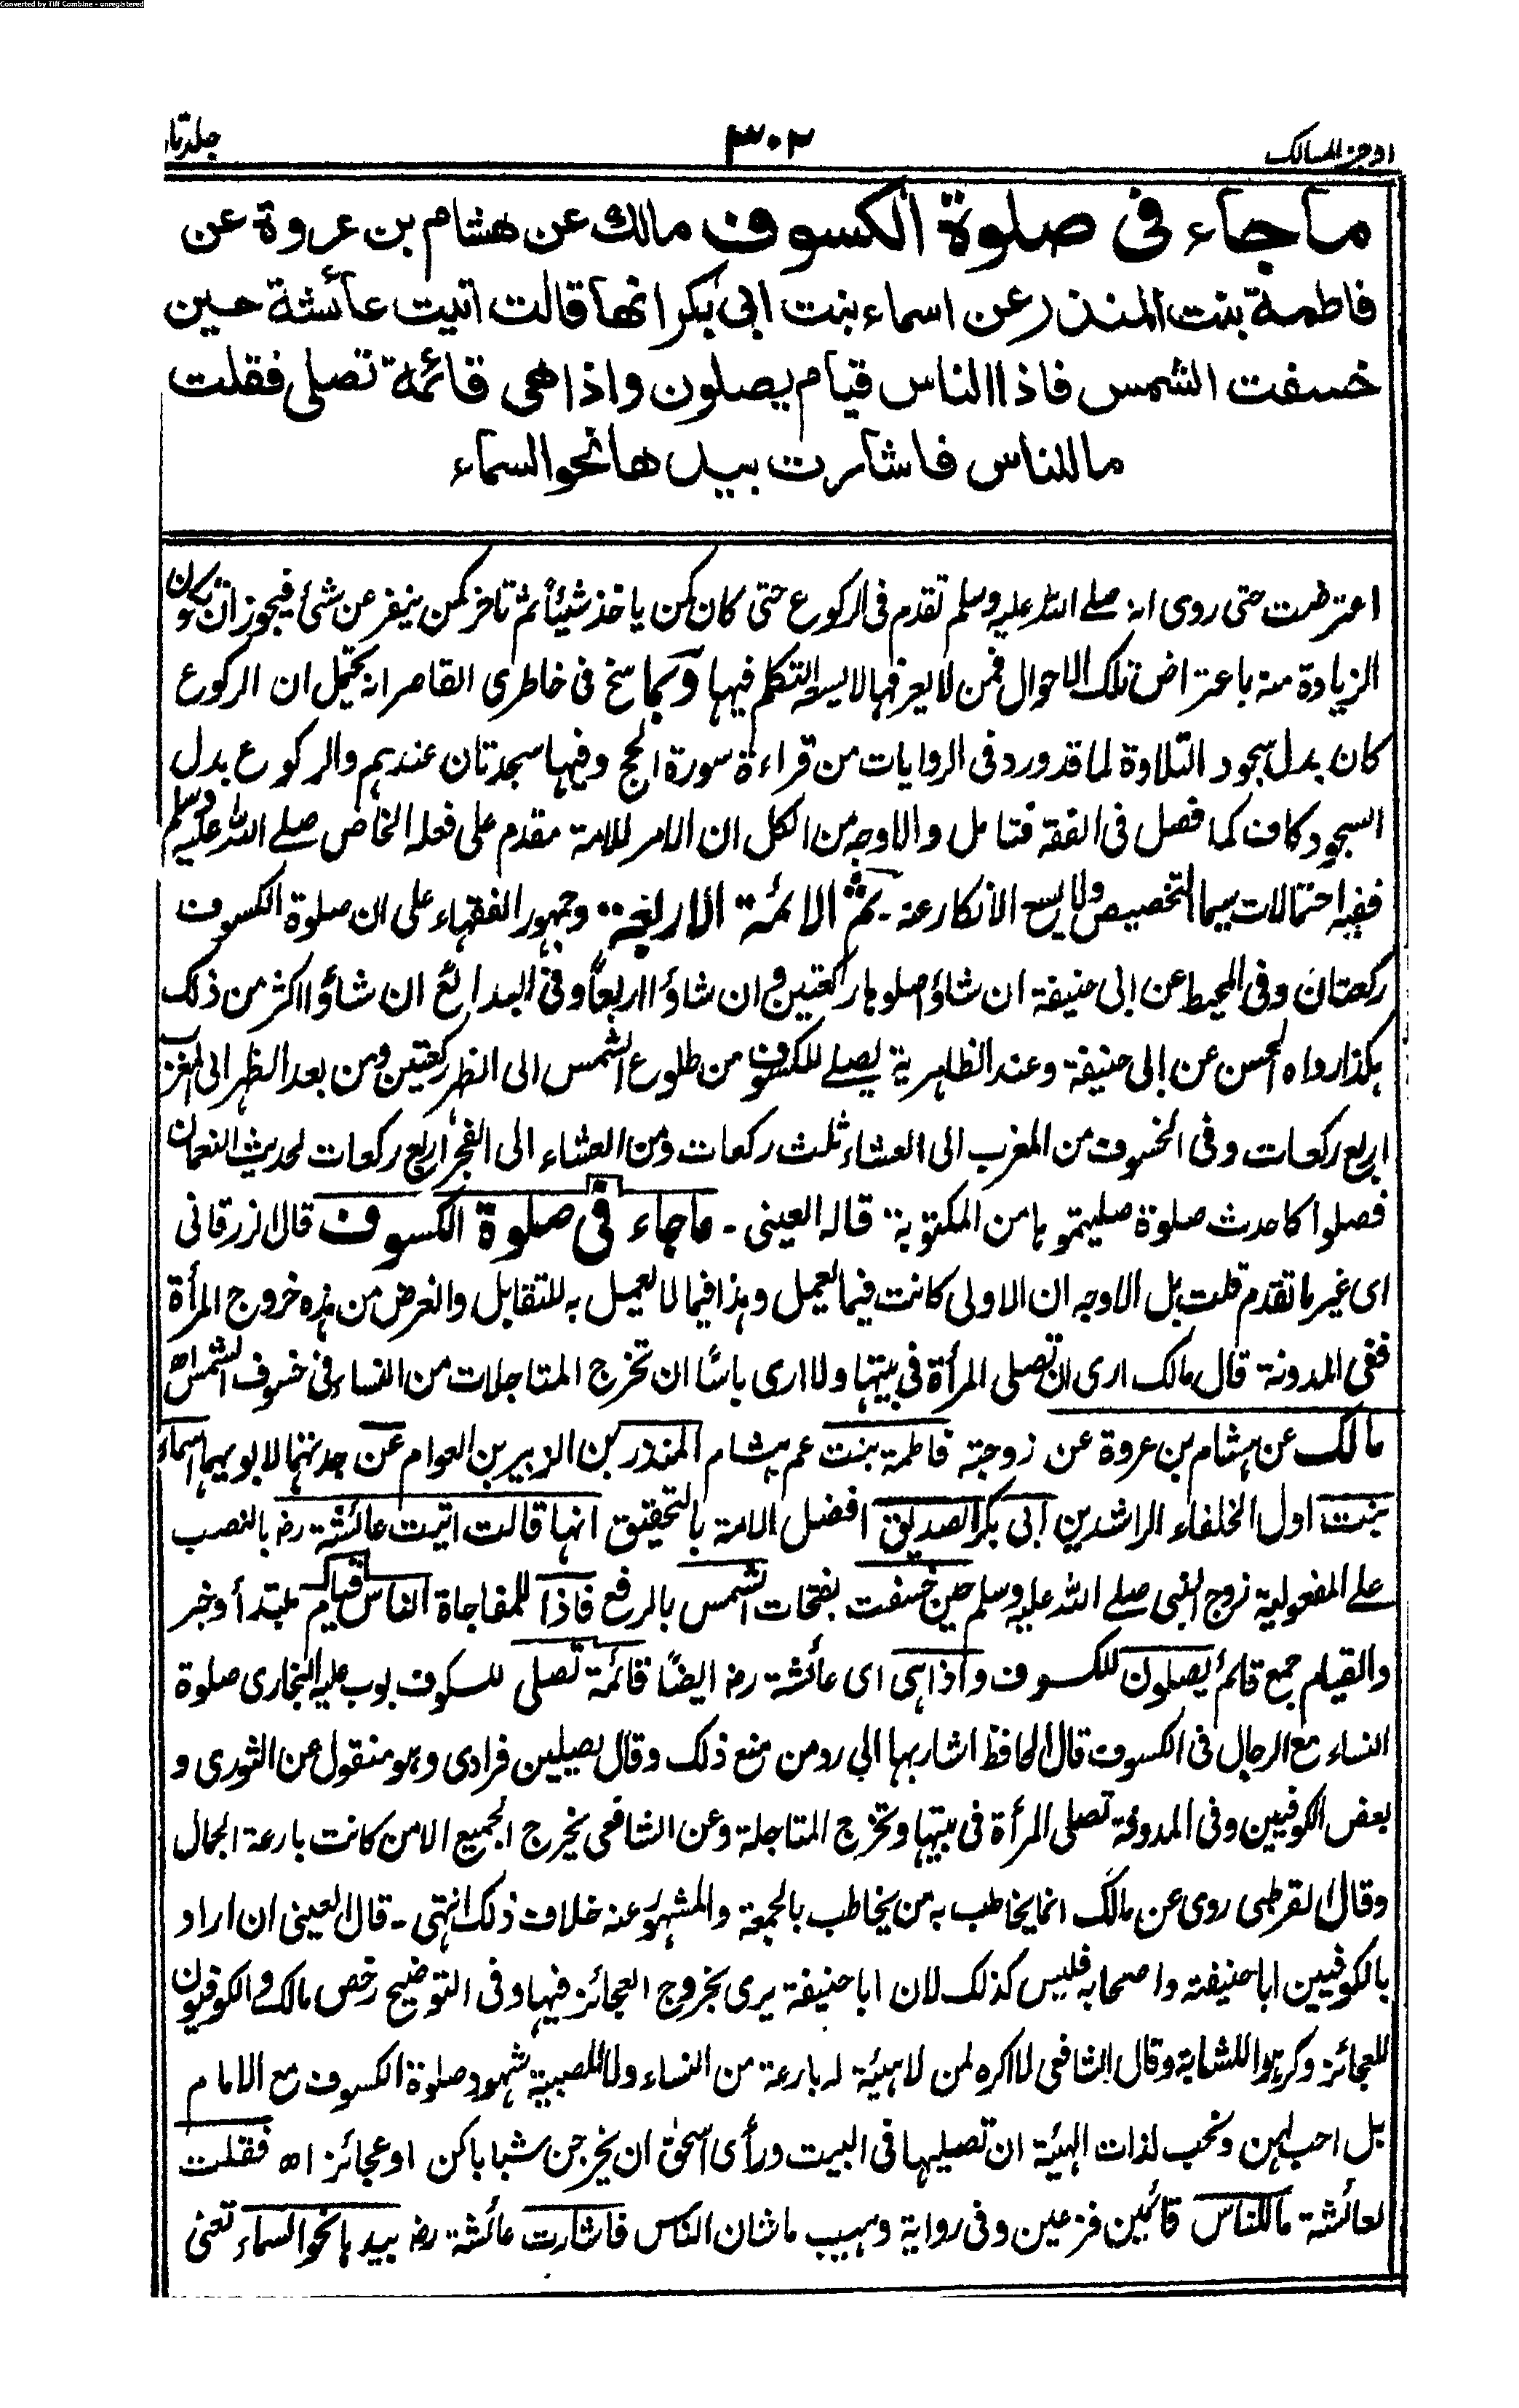 Converted by Tiff Combine - unregistered
اوجز المسالك
٣٠٢
ما جاء فى صلوة الكسوف مالك عن هشام بن عروة عن
فاطمة بنت المنذر عن اسماء بنت ابى بكر انها قالت اتيت عائشة حين
خسفت الشمس فاذا الناس قيام يصلون واذا هى قائمة تصلى فقلت
ما للناس فاشارت بيدها نحو السماء
اعترضت حتى روى انه صلے اللہ عليہ وسلم تقدم فى الركوع حتى كان كمن ياخذ شيئاً ثم تاخر كمن ينفر عن شئ فيجوز ان تكون
الزيادة منه باعتراض تلك الاحوال فمن لا يعرفها لا يسعه التكلم فيها ومما سنح فى خاطرى القاصر انه يحتمل ان الركوع
كان بدل سجود التلاوة لما قد ورد فى الروايات من قراءة سورة الحج وفيها سجدتان عندهم والركوع بدل
السجود كاف كما فصل فى الفقه فتامل والاوجه من الكل ان الامر للامة مقدم على فعله الخاص صلے اللہ عليہ وسلم
ففيه احتمالات سيما التخصيص ولا يسع الانكار عنه - ثم الائمة الاربعة وجمهور الفقهاء على ان صلوة الكسوف
ركعتان وفى المحيط عن ابى حنيفة ان شاؤا صلوها ركعتين وان شاؤا اربعاً وفى البدائع ان شاؤا اكثر من ذلك
هكذا رواه الحسن عن ابى حنيفة وعند الظاهرية يصلے للكسوف من طلوع الشمس الى الظهر ركعتين ومن بعد الظهر الى المغرب
اربع ركعات وفى الخسوف من المغرب الى العشاء ثلث ركعات ومن العشاء الى الفجر اربع ركعات لحديث النعمان
فصلوا كاحدث صلوة صليتموها من المكتوبة قاله العينى - ما جاء فى صلوة الكسوف قال الزرقانى
اى غير ما تقدم قلت بل الاوجه ان الاولى كانت فيما يعمل وهذا فيما لا يعمل به للتقابل والغرض من هذه خروج المرأة
ففى المدونة قال مالك ارى ان تصلى المرأة فى بيتها ولا ارى باسًا ان تخرج المتجالات من النساء فى خسوف الشمس اھ
مالك عن هشام بن عروة عن زوجته فاطمة بنت عم هشام المنذر بن الزبير بن العوام عن جدتهما لابويهما اسماء
بنت اول الخلفاء الراشدين ابى بكر الصديق افضل الامة بالتحقيق انها قالت اتيت عائشة رضـ بالنصب
على المفعولية زوج النبى صلے اللہ عليہ وسلم حين خسفت بفتحات الشمس بالرفع فاذا للمفاجاة الناس قيام مبتدأ وخبر
والقيام جمع قائم يصلون للكسوف واذا هى اى عائشة رضـ ايضًا قائمة تصلى للكسوف بوب عليه البخارى صلوة
النساء مع الرجال فى الكسوف قال الحافظ اشار بها الى رد من منع ذلك وقال يصلين فرادى وهو منقول عن الثورى و
بعض الكوفيين وفى المدونة تصلى المرأة فى بيتها وتخرج المتجالة وعن الشافعى يخرج الجميع الا من كانت بارعة الجمال
وقال القرطبى روى عن مالك انما يخاطب به من يخاطب بالجمعة والمشهور عنه خلاف ذلك انتهى - قال العينى ان اراد
بالكوفيين ابا حنيفة واصحابه فليس كذلك لان ابا حنيفة يرى بخروج العجائز فيها وفى التوضيح رخص مالك والكوفيون
للعجائز وكرهوا للشابة وقال الشافعى لا اكره لمن لا هيئة له بارعة من النساء ولا للصبية شهود صلوة الكسوف مع الامام
بل احب لهن ونحب لذات الهيئة ان تصليها فى البيت ورأى اسحق ان يخرجن شبابا كن او عجائز اھ فقلت
لعائشة ما للناس قائمين فزعين وفى رواية وهيب ما شان الناس فاشارت عائشة رضـ بيدها نحو السماء تعنى